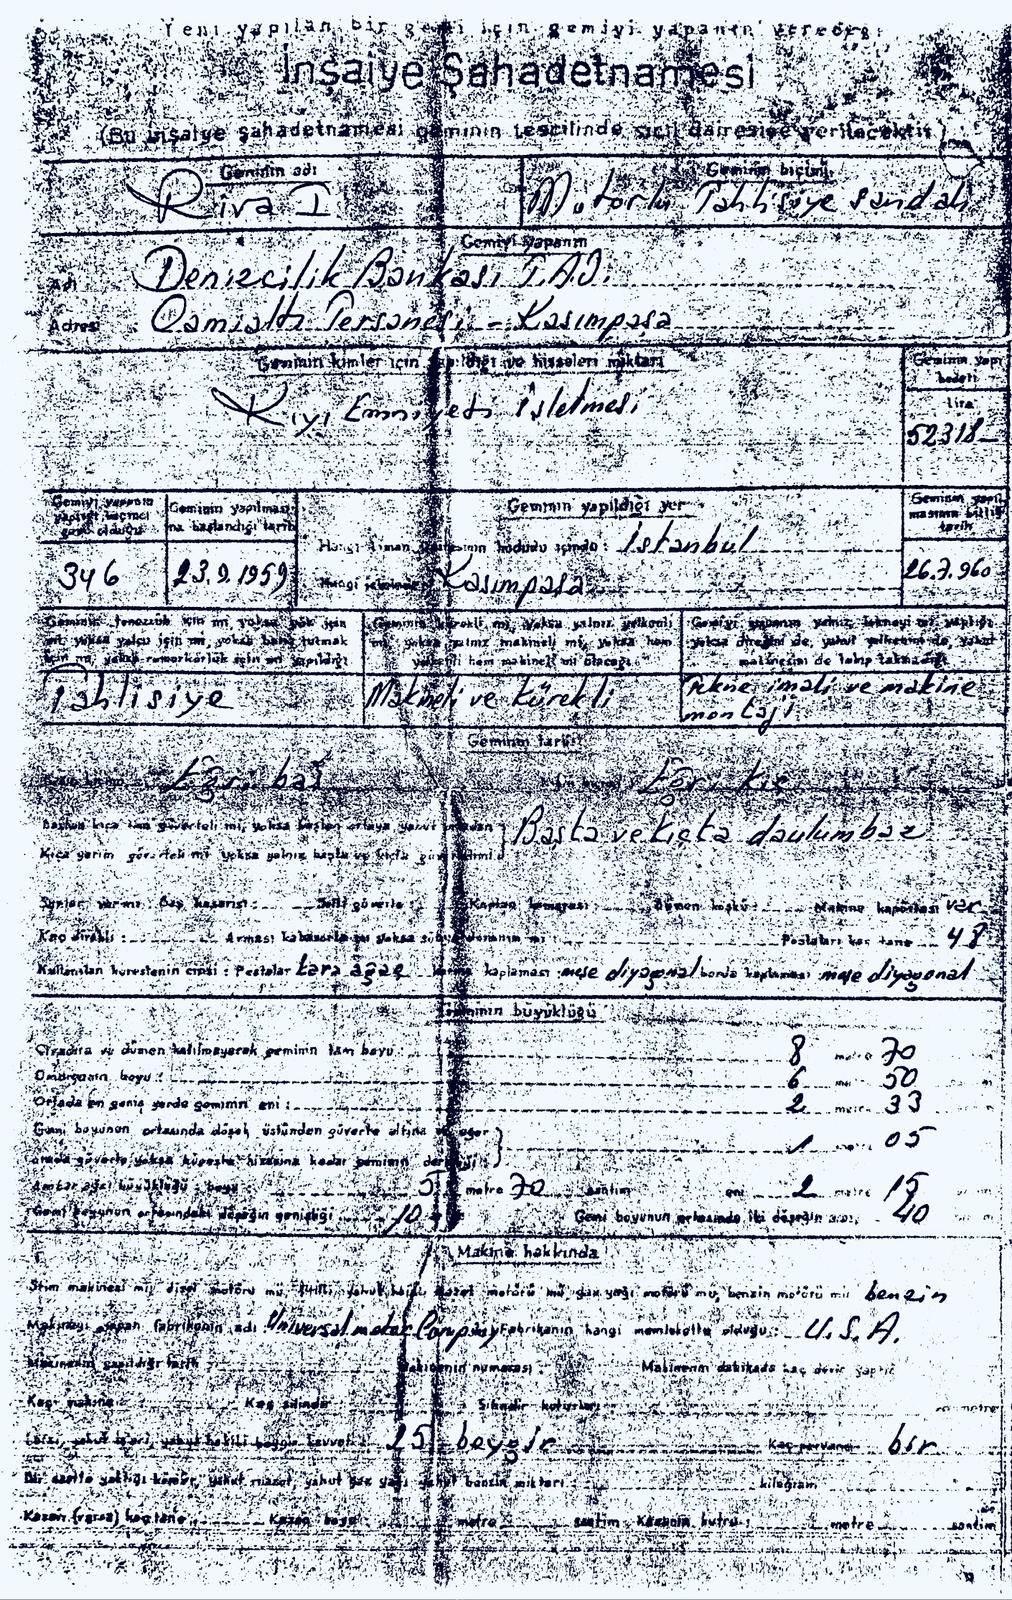 Yeni yapılan bir gemi için gemiyi yapanın vereceği
İnşaiye Şahadetnamesi
(Bu inşaiye şahadetnamesi geminin tescilinde sicil dairesine verilecektir.)
Geminin adı
Geminin biçimi
Riva I
Motorlu Tahlisiye Sandalı
Gemiyi yapanın
Adı Denizcilik Bankası T.A.O.
Adresi: Camialtı Tersanesi - Kasımpaşa
Geminin kimler için yapıldığı ve hisseleri miktarı
Geminin yapı bedeli
Lira
Kıyı Emniyeti İşletmesi
52318
Gemiyi yapanın yaptığı kaçıncı gemi olduğu
Geminin yapılmasına başlandığı tarih
Geminin yapıldığı yer
Geminin yapılmasının bittiği tarih
Hangi liman dairesinin hududu içinde: İstanbul
346
23.9.1959
Kasımpaşa
26.7.960
Geminin tenezzüh için mi, yoksa yük için mi, yoksa yolcu için mi, yoksa balık tutmak için mi, yoksa romorkörlük için mi yapıldığı
Geminin kürekli mi, yoksa yalnız yelkenli mi, yoksa yalnız makineli mi, yoksa hem yelkenli hem makineli mi olacağı
Gemiyi yapanın yalnız tekneyi mi yaptığı yoksa direğini de, yahut yelkenini de, yahut makinesini de takıp takmadığı
Tahlisiye
Makineli ve Kürekli
Tekne imali ve makine montajı
Geminin tarifi
Eğri baş
Eğri kıç
Baştan kıça tam güverteli mi, yoksa baştan ortaya yahut ortadan
Kıça yarım güverteli mi yoksa yalnız başta ve kıçta güverteli mi
Başta ve kıçta davlumbaz
Baş kasarası: Kaptan kamarası: Dümen köşkü: Makine kaportası var
Kaç direkli: Postaları kaç tane 48
Kullanılan kerestenin cinsi: Postalar kara ağaç kaplaması meşe diyagonal borda kaplaması meşe diyagonal
Geminin büyüklüğü
Civadıra ve dümen katılmayarak geminin tam boyu: 8 metre 70
Omurganın boyu: 6 metre 50
Ortada en geniş yerde geminin eni: 2 metre 33
Gemi boyunun ortasında döşek üstünden güverte altına veya eğer
orada güverte yoksa küpeşte hizasına kadar geminin derinliği: 1 metre 05
Ambar ağzı büyüklüğü: boyu: 5 metre 70 santim eni 2 metre 15
Gemi boyunun ortasındaki döşeğin genişliği 10 Gemi boyunun ortasında iki döşeğin arası 40
Makine hakkında
Stim makinesi mi, dizel motörü mü, gaz yağı motörü mü, benzin motörü mü benzin
Makineyi yapan fabrikanın adı: Universal motor Company Fabrikanın hangi memlekette olduğu: U.S.A.
Makinenin yapıldığı tarih Makinenin numarası: Makinenin dakikada kaç devir yaptığı
Kaç makine Kaç silindir Silindir kuturları
25 beygir Kaç pervane bir
Bir saatte yaktığı kömür, yahut mazot, yahut gaz yağı yahut benzin miktarı: kilogram
Kazan (varsa) kaç tane Kazan boyu: metre santim Kazanın kutru: metre santim